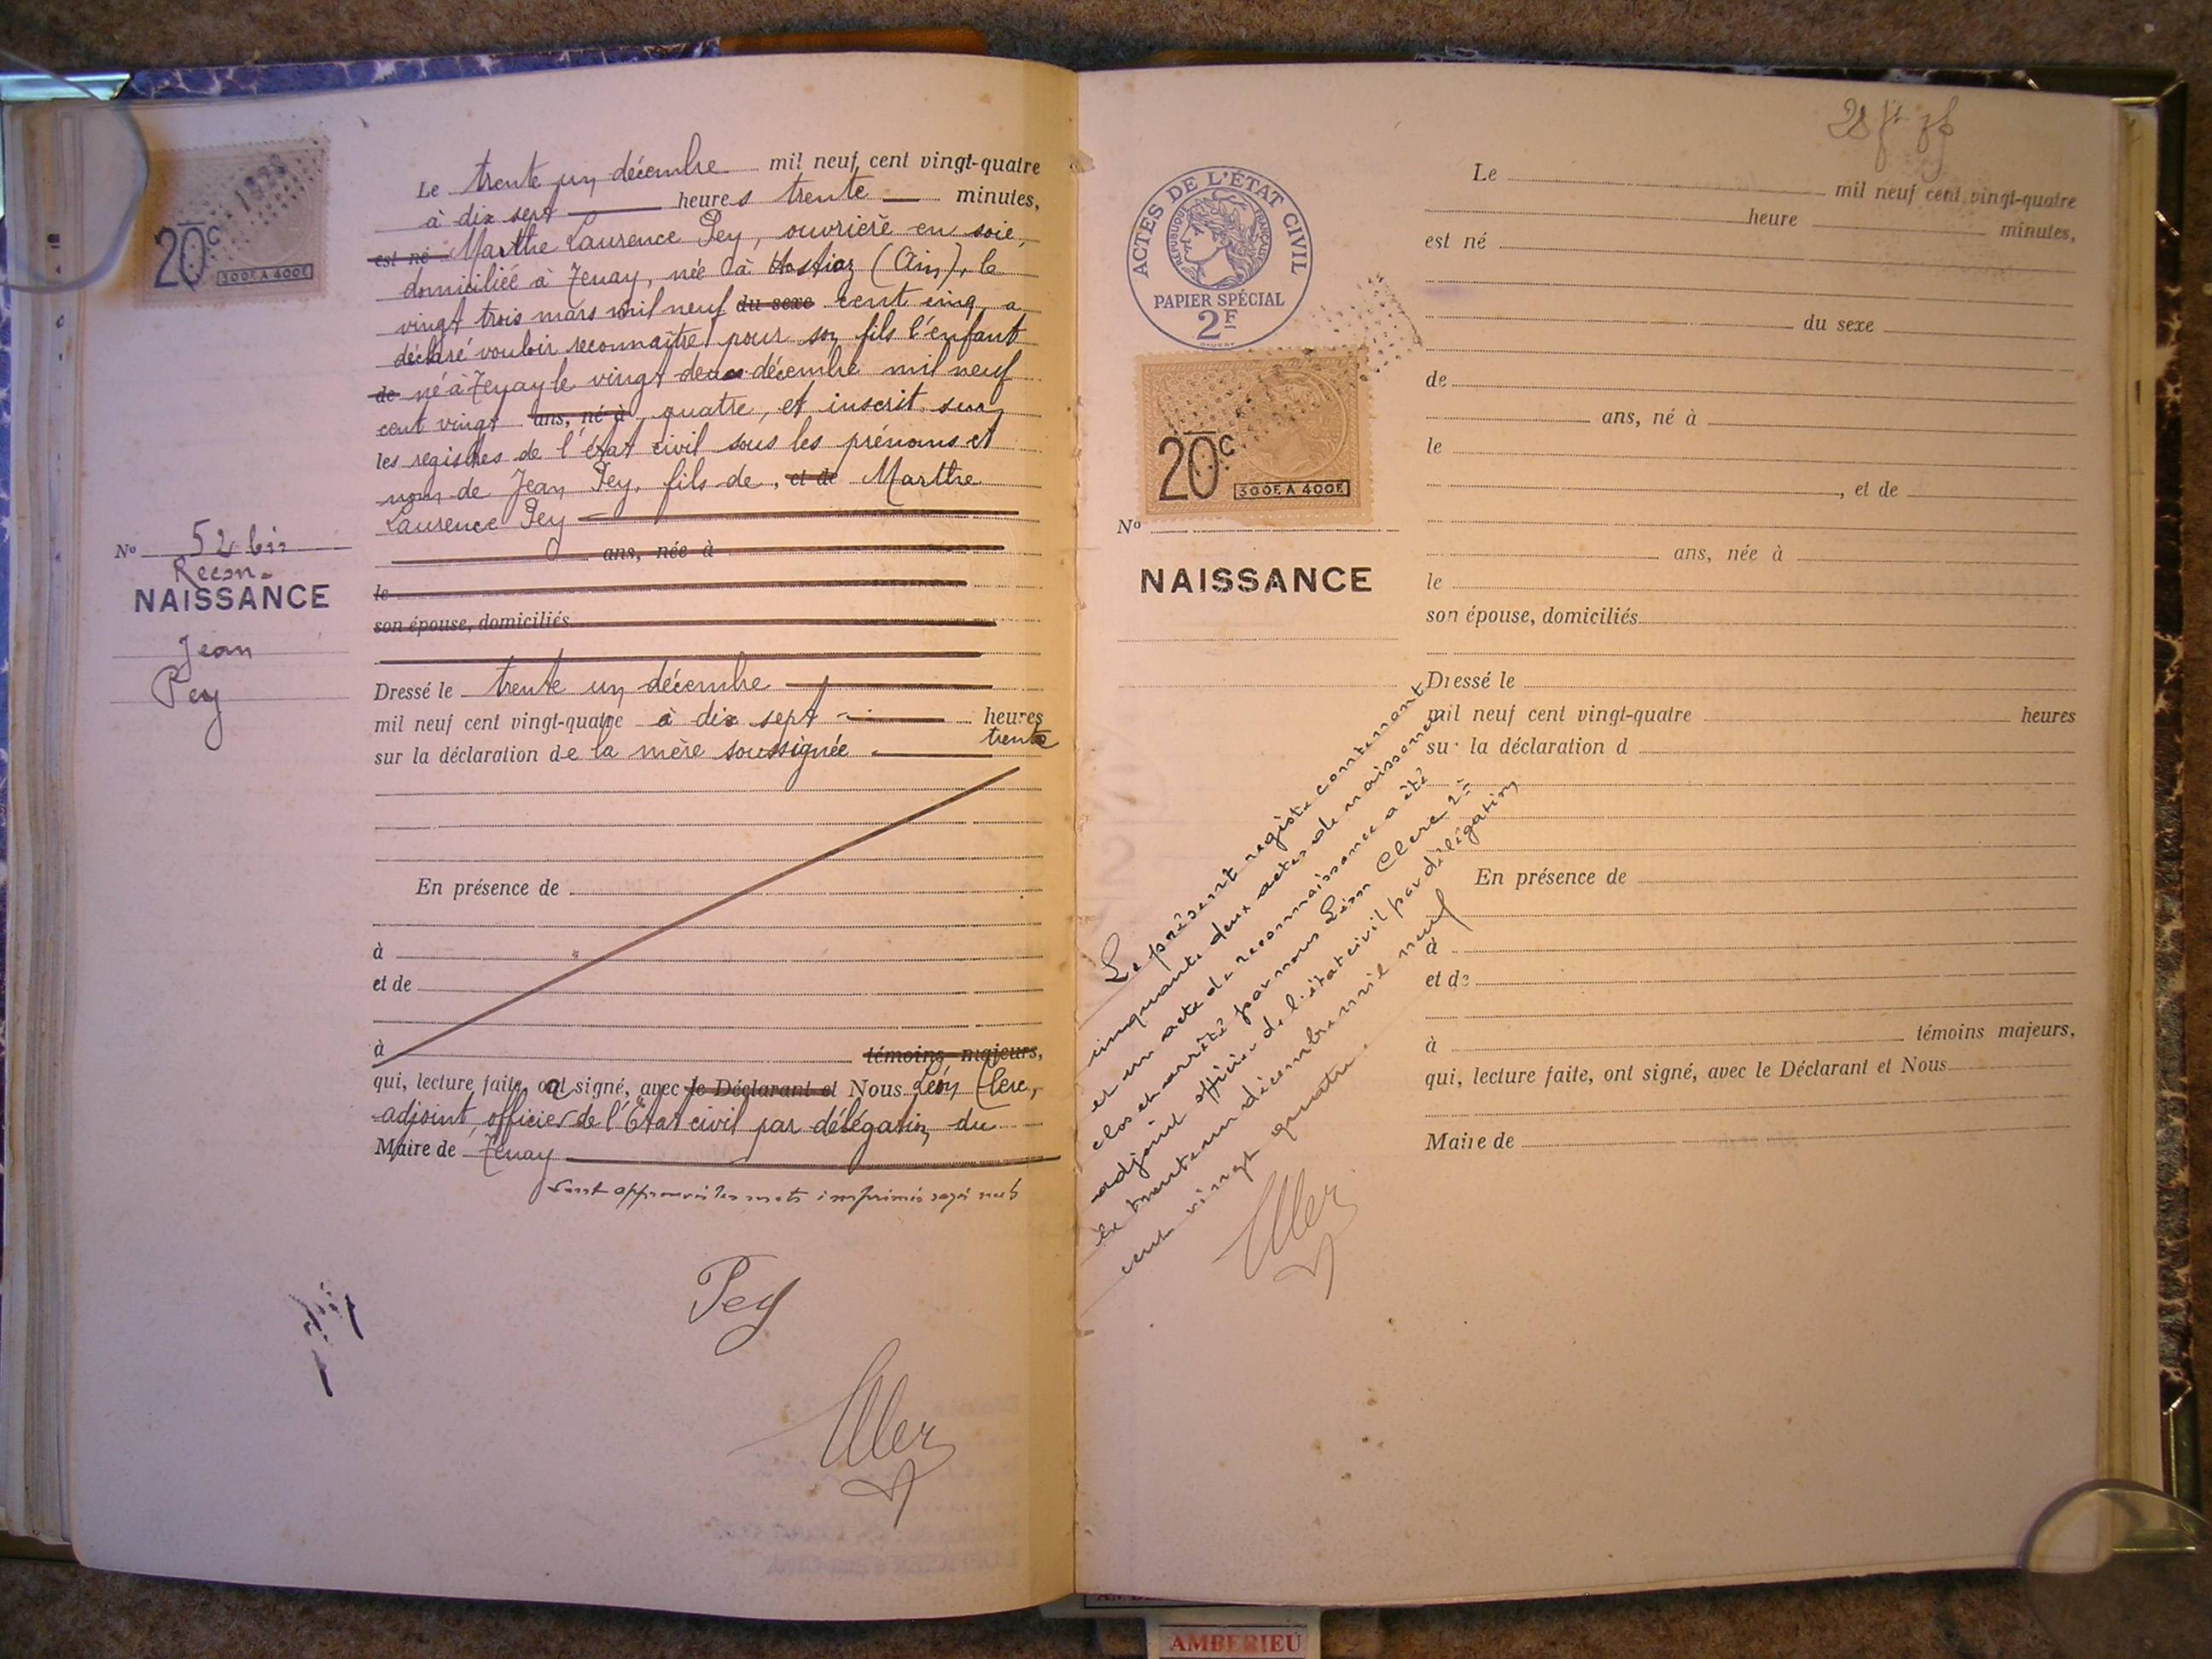 20c
300F. A 400F.
Le trente un décembre mil neuf cent vingt-quatre
à dix sept heures trente minutes,
est né Marthe Laurence Pey, ouvrière en soie,
domiciliée à Tenay, née à Hostiaz (Ain), le
vingt trois mars mil neuf du sexe cent cinq, a
déclaré vouloir reconnaître pour son fils l'enfant
de né à Tenay le vingt deux décembre mil neuf
cent vingt ans, né à quatre, et inscrit sur
les registres de l'état civil sous les prénoms et
nom de Jean Pey, fils de, et de Marthe
Laurence Pey
ans, née à
le
son épouse, domiciliés
No 52 bis
Recon.
NAISSANCE
Jean
Pey
Dressé le trente un décembre
mil neuf cent vingt-quatre à dix sept heures
trente
sur la déclaration de la mère soussignée
En présence de
à
et de
à témoins majeurs,
qui, lecture faite, a signé, avec le Déclarant et Nous Léon Clerc,
adjoint, officier de l'Etat civil par délégation du
Maire de Tenay
Sont approuvés les mots imprimés rayés nuls
Pey
28
ACTES DE L'ÉTAT CIVIL
RÉPUBLIQUE FRANÇAISE
PAPIER SPÉCIAL
2F
20c
300F. A 400F.
No
NAISSANCE
Le mil neuf cent vingt-quatre
heure minutes,
est né
du sexe
de
ans, né à
le
, et de
ans, née à
le
son épouse, domiciliés
Dressé le
mil neuf cent vingt-quatre heures
sur la déclaration d
En présence de
à
et de
à témoins majeurs,
qui, lecture faite, ont signé, avec le Déclarant et Nous
Maire de
Le présent registre contenant
cinquante deux actes de naissance
et un acte de reconnaissance a été
clos et arrêté par nous Léon Clerc 2e
adjoint officier de l'état civil par délégation
le trente un décembre mil neuf
cent vingt quatre.
AMBERIEU